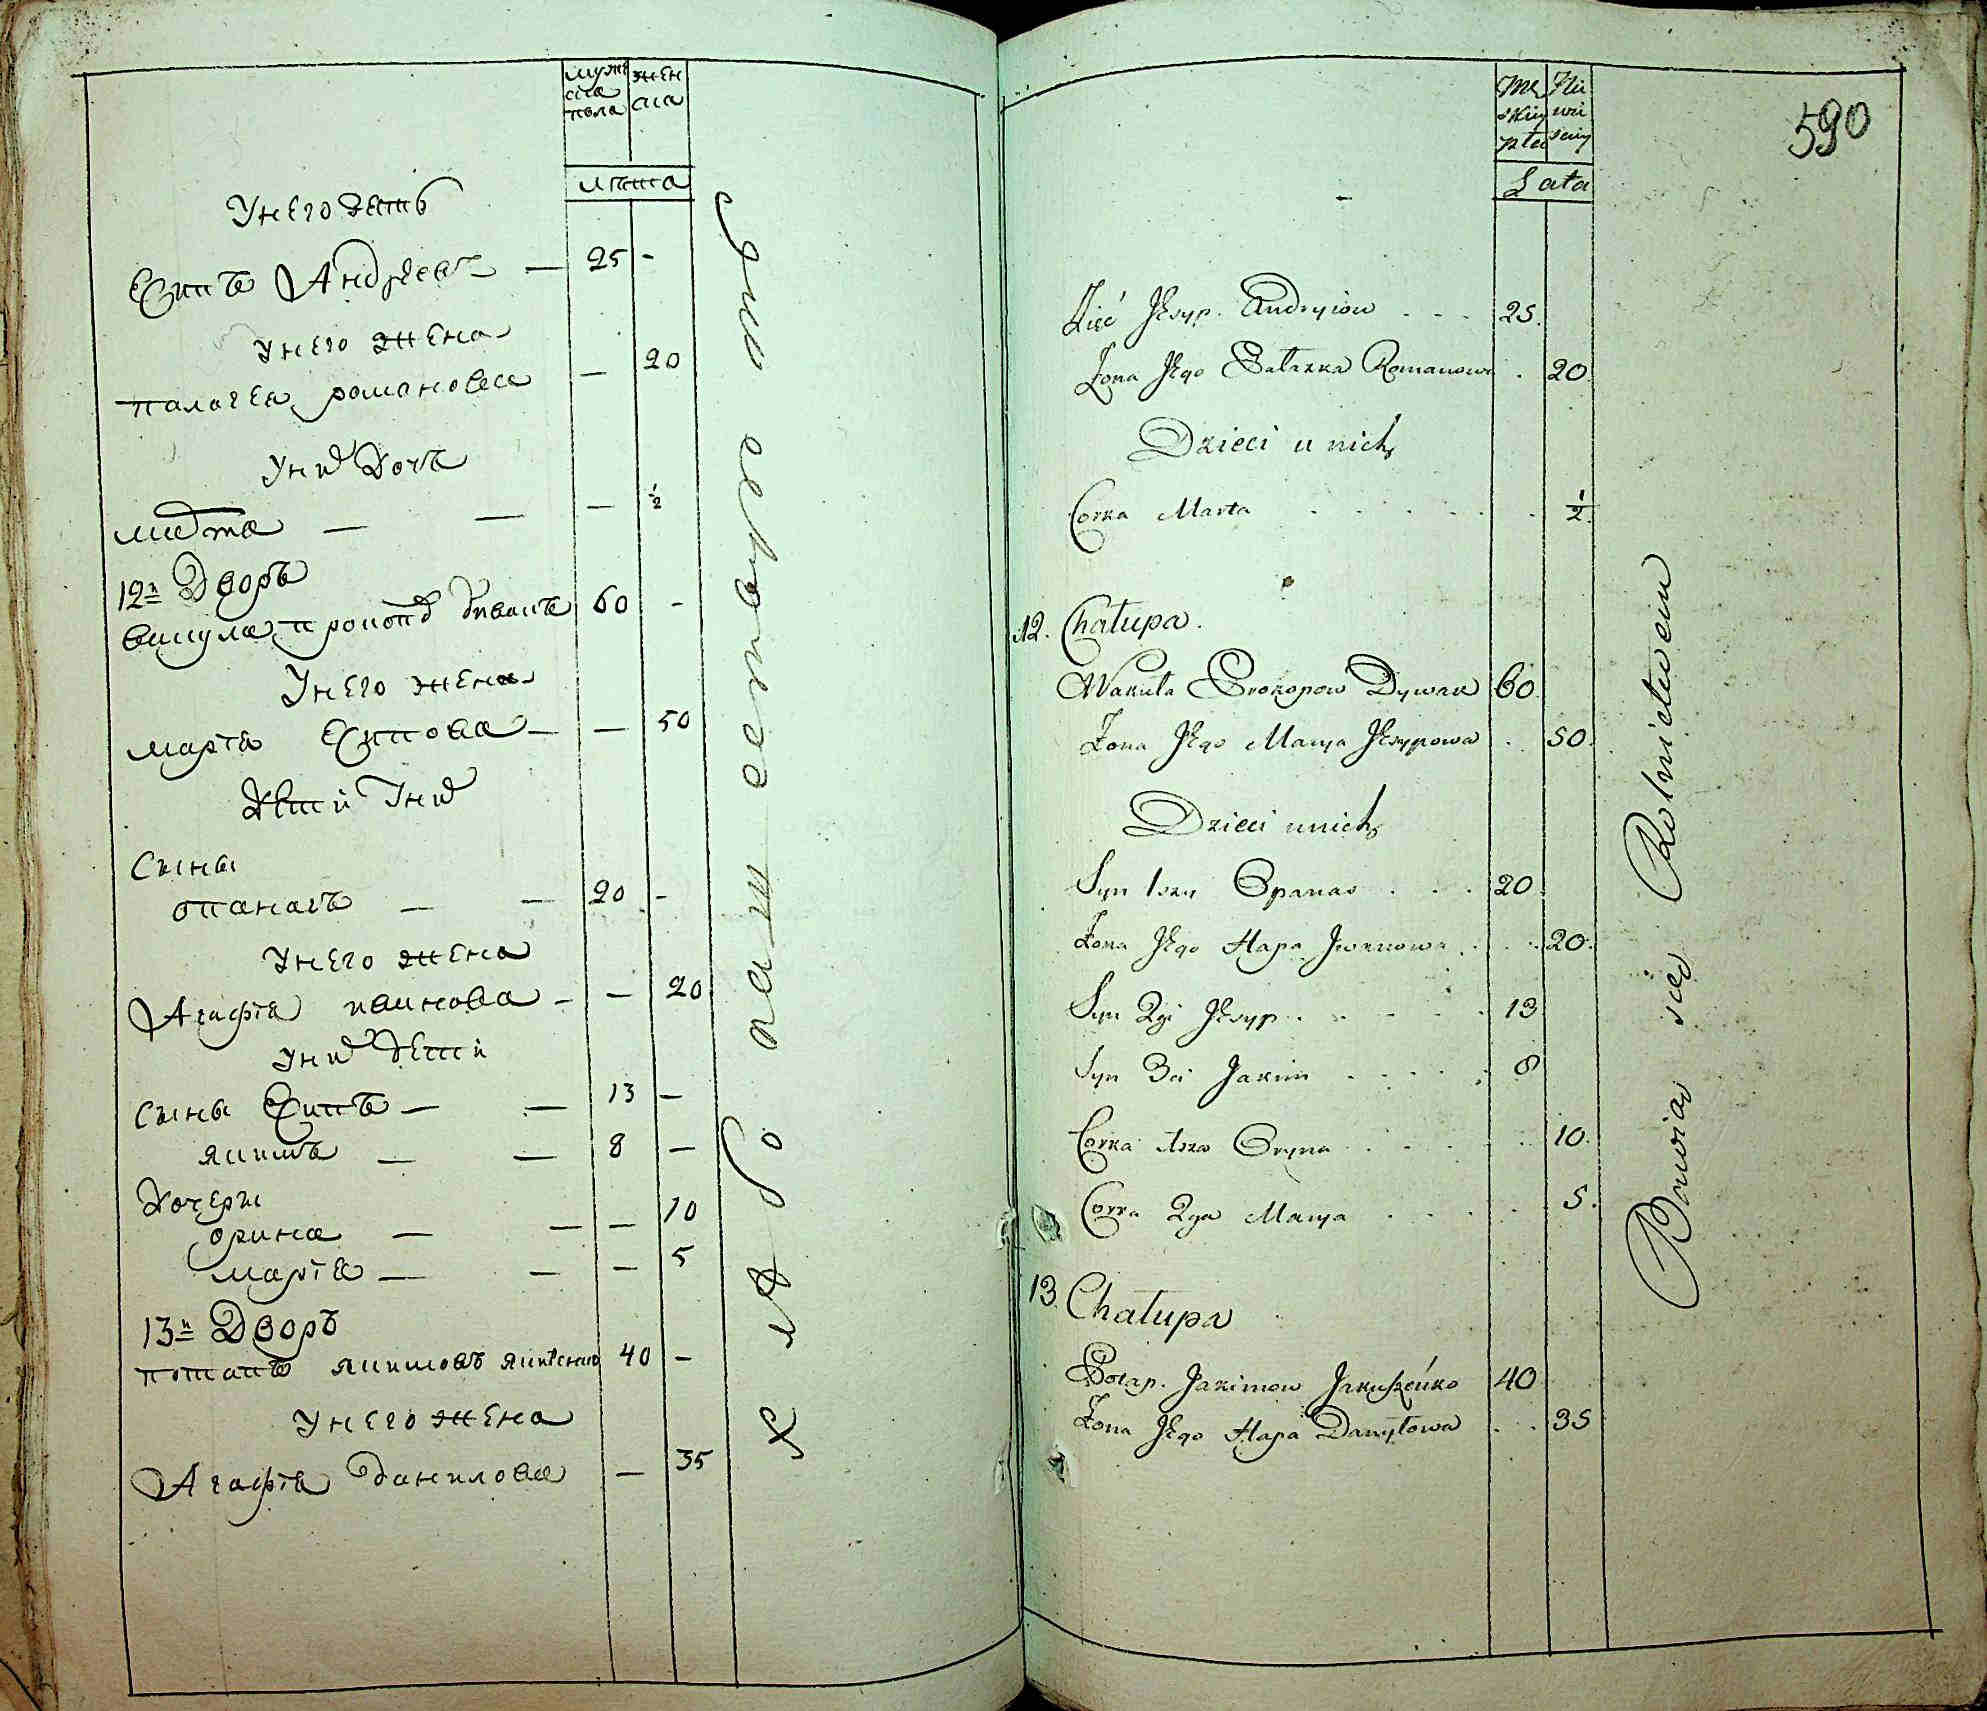 мужеска пола
женска
лѣта
У него зять
Есипъ Андреевъ — 25 -
У него жена
Палагея романовна — 20
У них дочъ
— — — ½
12й Дворъ
вакула прокоповъ диванъ 60 -
У него жена
марья Есипова — — 50
Дети У них
Сыны
опанасъ — — 20 -
У него жена
Агафія иванова - — 20
У них дети
Сыны Есипъ — — 13 —
якимъ — — 8 —
Дочери
орина — — — 10
марія — — — 5
13й Дворъ
потапъ якимовъ 40 -
У него жена
Агафія данилова — 35
хлебопашеством
590
Męskiey płci
Lata
Zięć Jesyp Andryiow . . . 25.
Żona Jego Romanowa . 20.
Dzieci u nich
Corka Marta . . . . . . ½.
12. Chałupa.
Wakuła Prokopow Dywan 60.
Żona Jego Marya Jesypowa . . 50.
Dzieci u nich
Syn 1szy Opanas . . . 20.
Żona Jego Hapa Iwanowa . . . 20.
Syn 2gi Jesyp . . . . . 13
Syn 3ci Jakim . . . . . 8
Corka 1sza Oryna . . . . . 10.
Corka 2ga Marya . . . . . 5.
13. Chałupa
Potap. Jakimow Jakuszeńko 40
Żona Jego Hapa Danyłowa . . . 35
Bawią się Rolnictwem